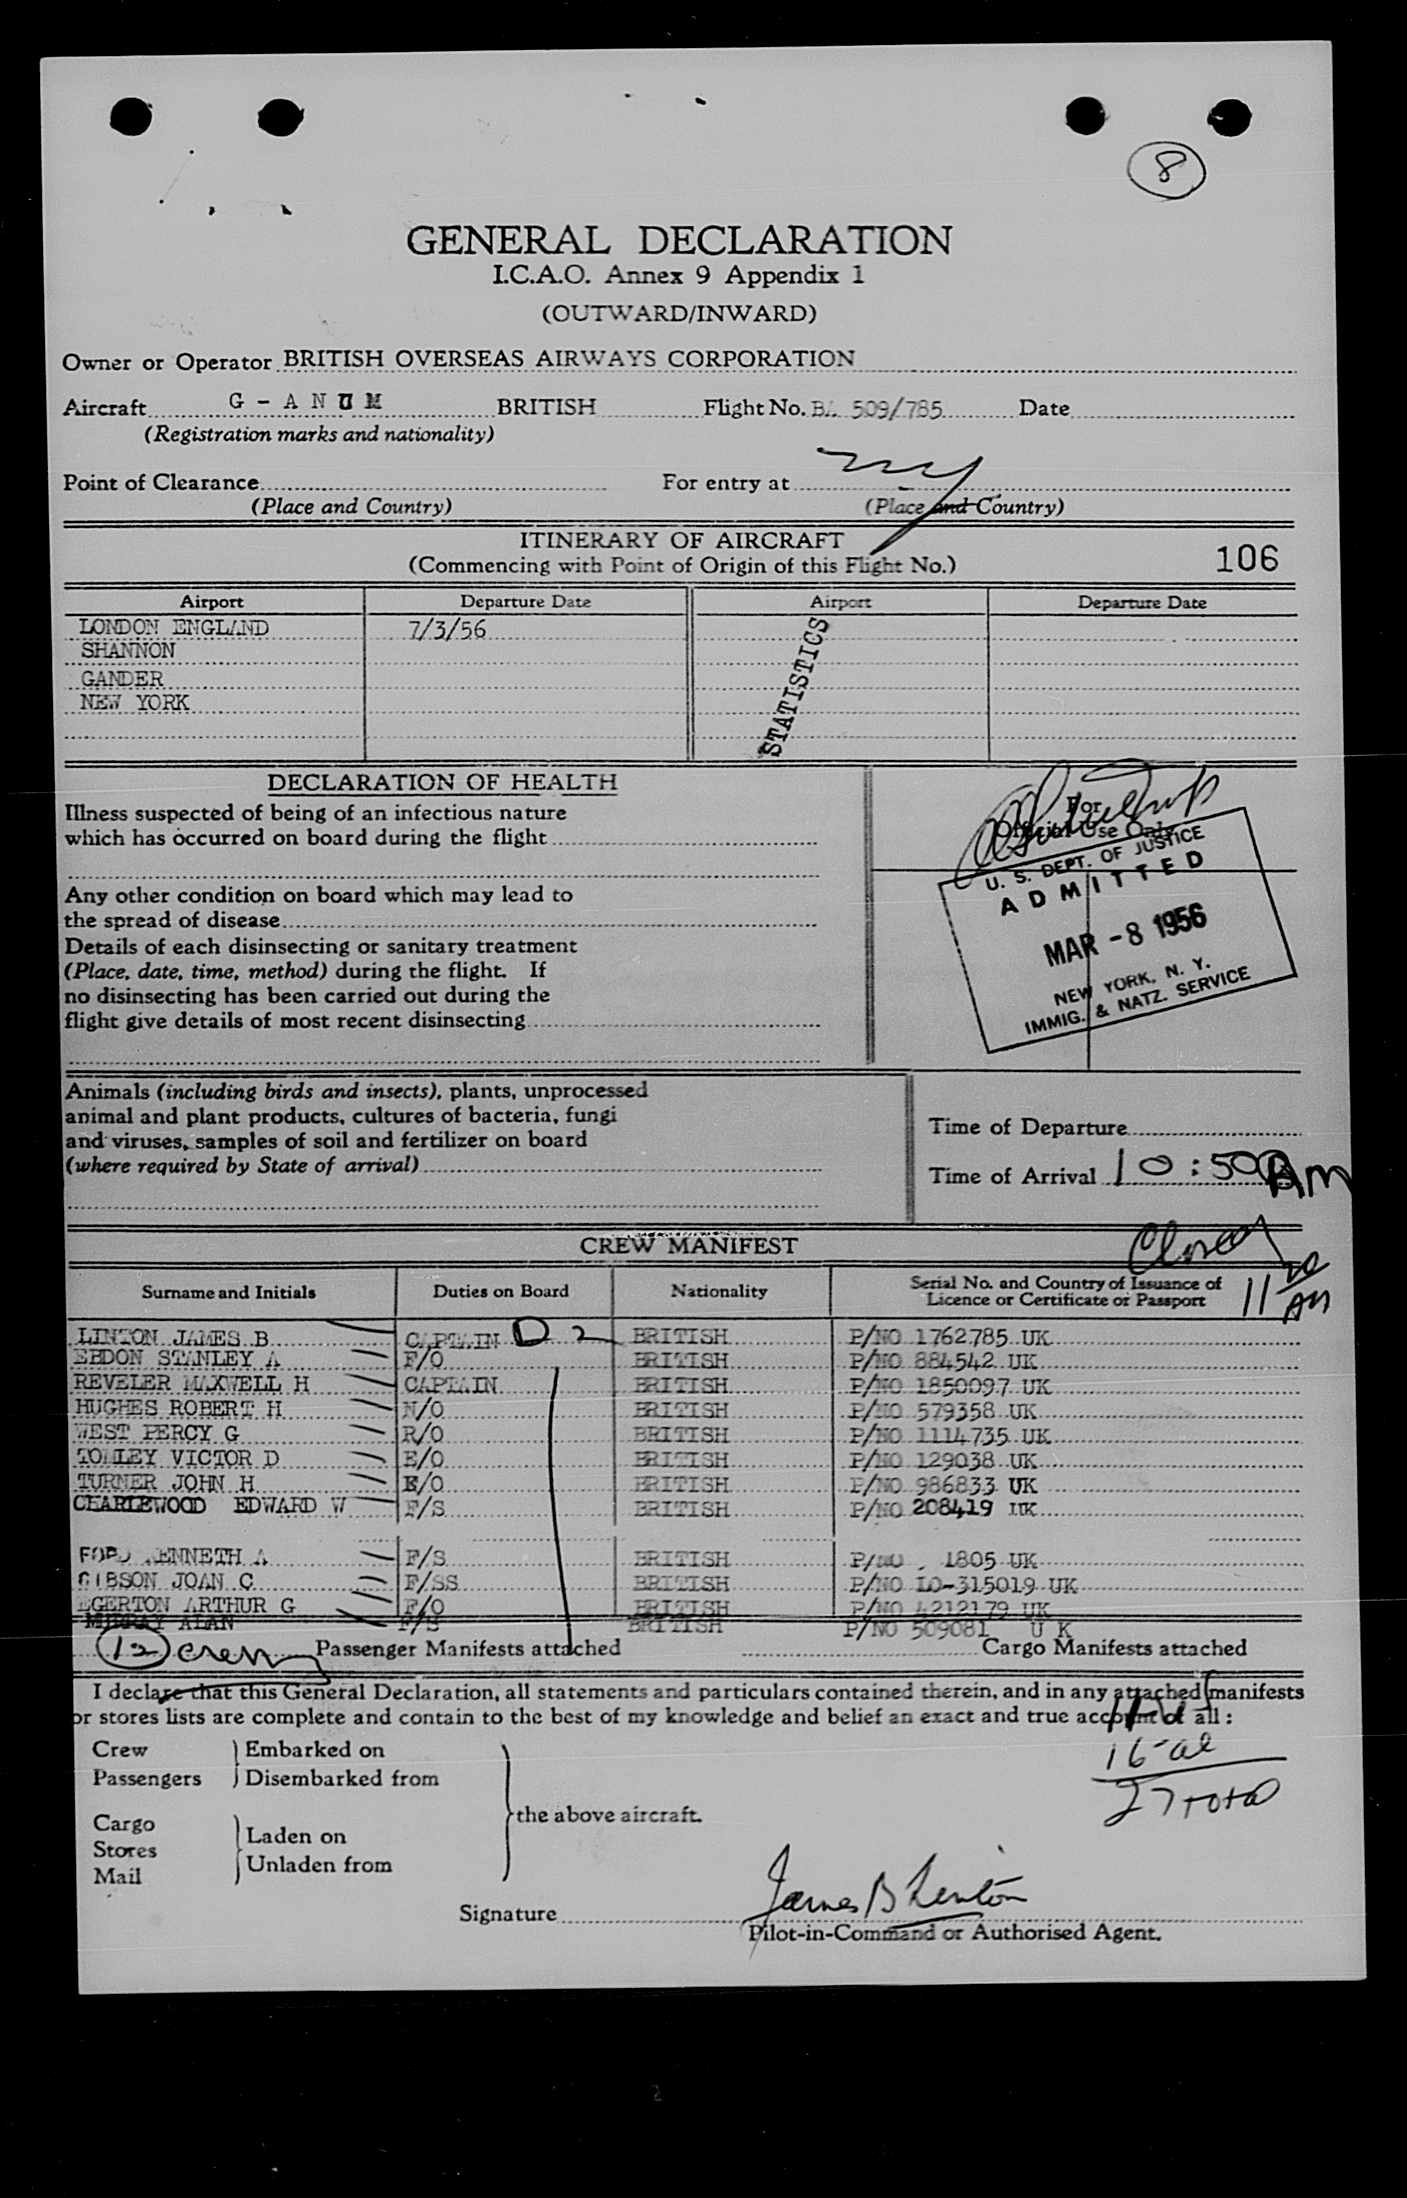 8
GENERAL DECLARATION
I.C.A.O. Annex 9 Appendix 1
(OUTWARD/INWARD)
Owner or Operator BRITISH OVERSEAS AIRWAYS CORPORATION
Aircraft G - A N U M BRITISH Flight No. BA 509/785 Date
(Registration marks and nationality)
Point of Clearance For entry at NY
(Place and Country) (Place and Country)
ITINERARY OF AIRCRAFT
(Commencing with Point of Origin of this Flight No.) 106
Airport Departure Date Airport Departure Date
LONDON ENGLAND 7/3/56
SHANNON
GANDER
NEW YORK
STATISTICS
DECLARATION OF HEALTH
Illness suspected of being of an infectious nature
which has occurred on board during the flight
Any other condition on board which may lead to
the spread of disease
Details of each disinsecting or sanitary treatment
(Place, date, time, method) during the flight. If
no disinsecting has been carried out during the
flight give details of most recent disinsecting
For
Official Use Only
U. S. DEPT. OF JUSTICE
ADMITTED
MAR -8 1956
NEW YORK, N. Y.
IMMIG. & NATZ. SERVICE
Animals (including birds and insects), plants, unprocessed
animal and plant products, cultures of bacteria, fungi
and viruses, samples of soil and fertilizer on board
(where required by State of arrival)
Time of Departure
Time of Arrival 10:50 AM
CREW MANIFEST
Closed
11 20 AM
Surname and Initials Duties on Board Nationality Serial No. and Country of Issuance of
Licence or Certificate or Passport
LINTON JAMES B CAPTAIN D 2 BRITISH P/NO 1762785 UK
EBDON STANLEY A F/O BRITISH P/NO 884542 UK
REVELER MAXWELL H CAPTAIN BRITISH P/NO 1850097 UK
HUGHES ROBERT H N/O BRITISH P/NO 579358 UK
WEST PERCY G R/O BRITISH P/NO 1114735 UK
VICTOR D E/O BRITISH P/NO 129038 UK
TURNER JOHN H E/O BRITISH P/NO 986833 UK
CHARLEWOOD EDWARD W F/S BRITISH P/NO 208419 UK
FORD KENNETH A F/S BRITISH P/NO 1805 UK
GIBSON JOAN C F/SS BRITISH P/NO LO-315019 UK
EGERTON ARTHUR G F/O BRITISH P/NO 4212179 UK
MURRAY ALAN F/S BRITISH P/NO 509081 U K
12 crew Passenger Manifests attached Cargo Manifests attached
I declare that this General Declaration, all statements and particulars contained therein, and in any attached manifests
or stores lists are complete and contain to the best of my knowledge and belief an exact and true account of all :
Crew Embarked on
Passengers Disembarked from
the above aircraft.
Cargo
Stores Laden on
Mail Unladen from
16-al
27 total
Signature James B Linton
Pilot-in-Command or Authorised Agent.